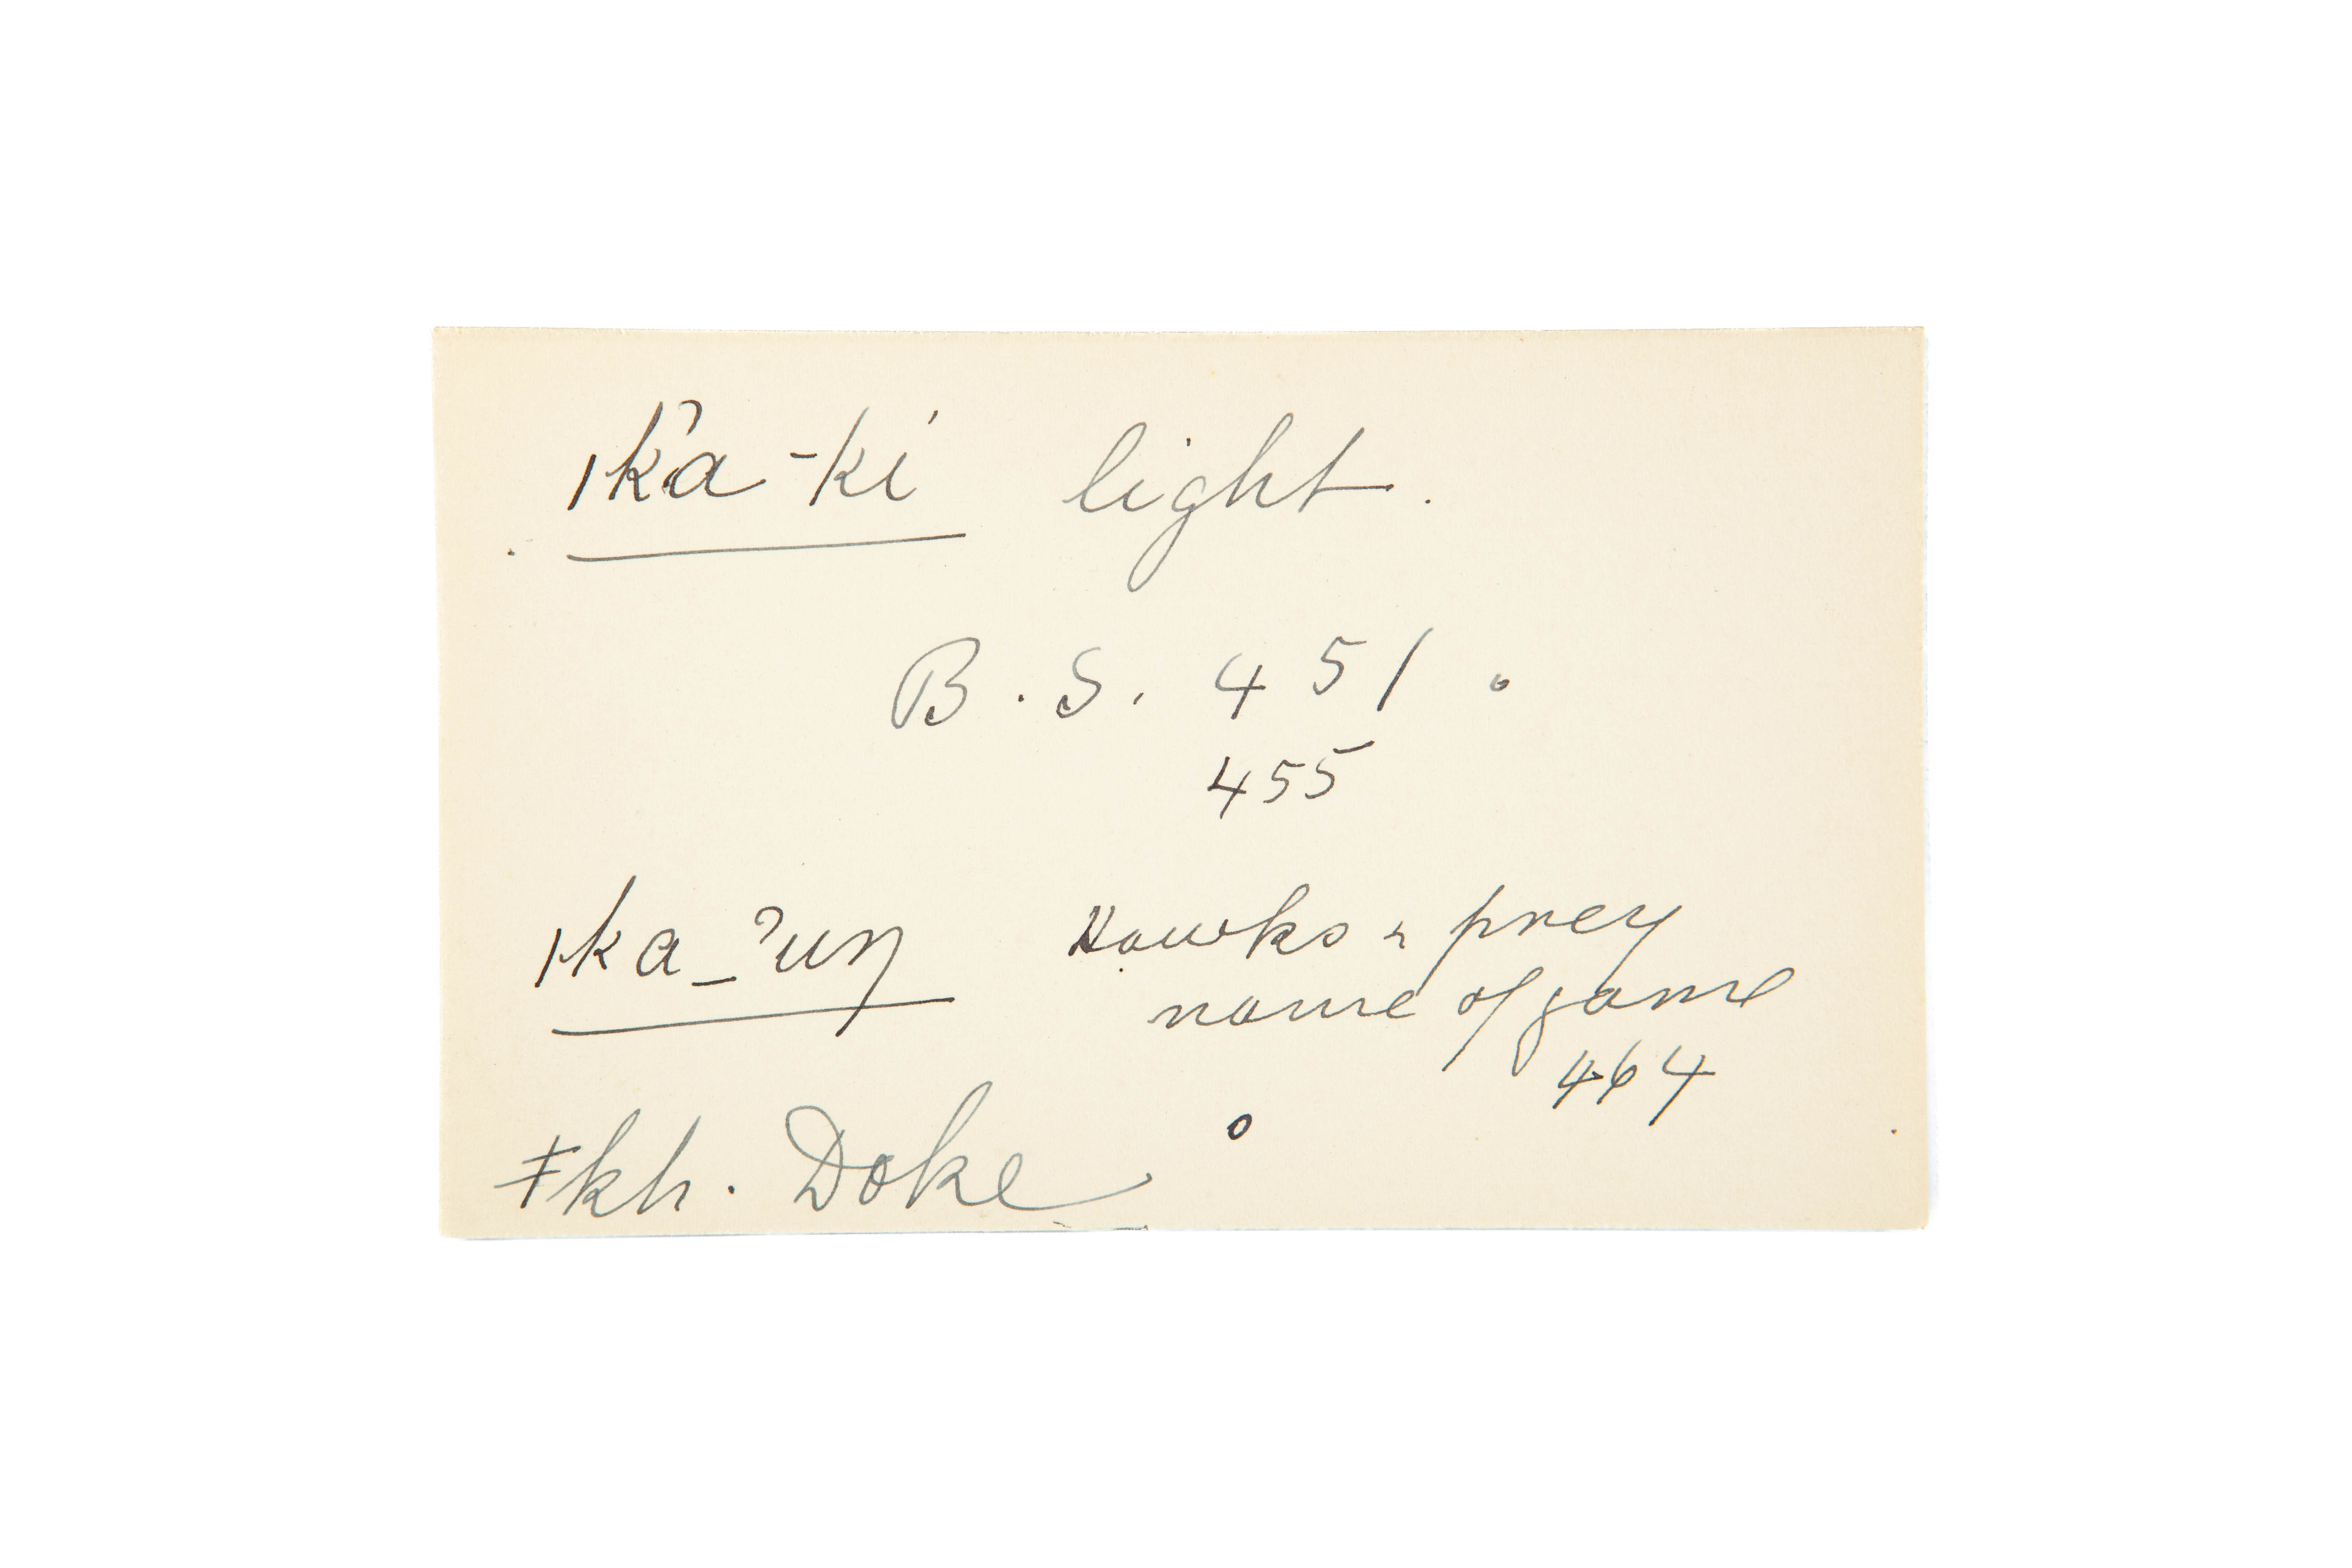 ǀkˀa-ki light.
B.S. 451.
455
ǀka-ˀuŋ Hawks & prey
name of game
464
ǂkh. Doke